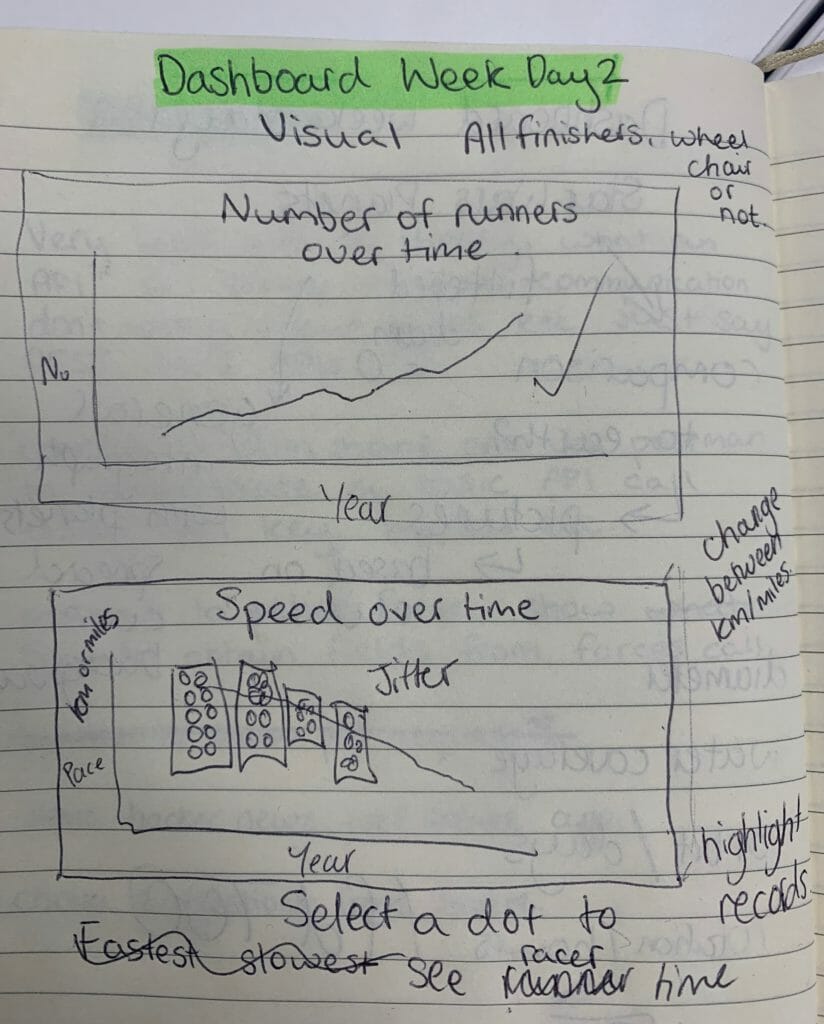 Dashboard Week Day 2
Visual All finishers, wheel
chair
or
not.
Number of runners
over time
No
Year
change
between
km/miles
Speed over time
km or miles
Jitter
Pace
Year
highlight
records
Select a dot to
Fastest slowest see racer time